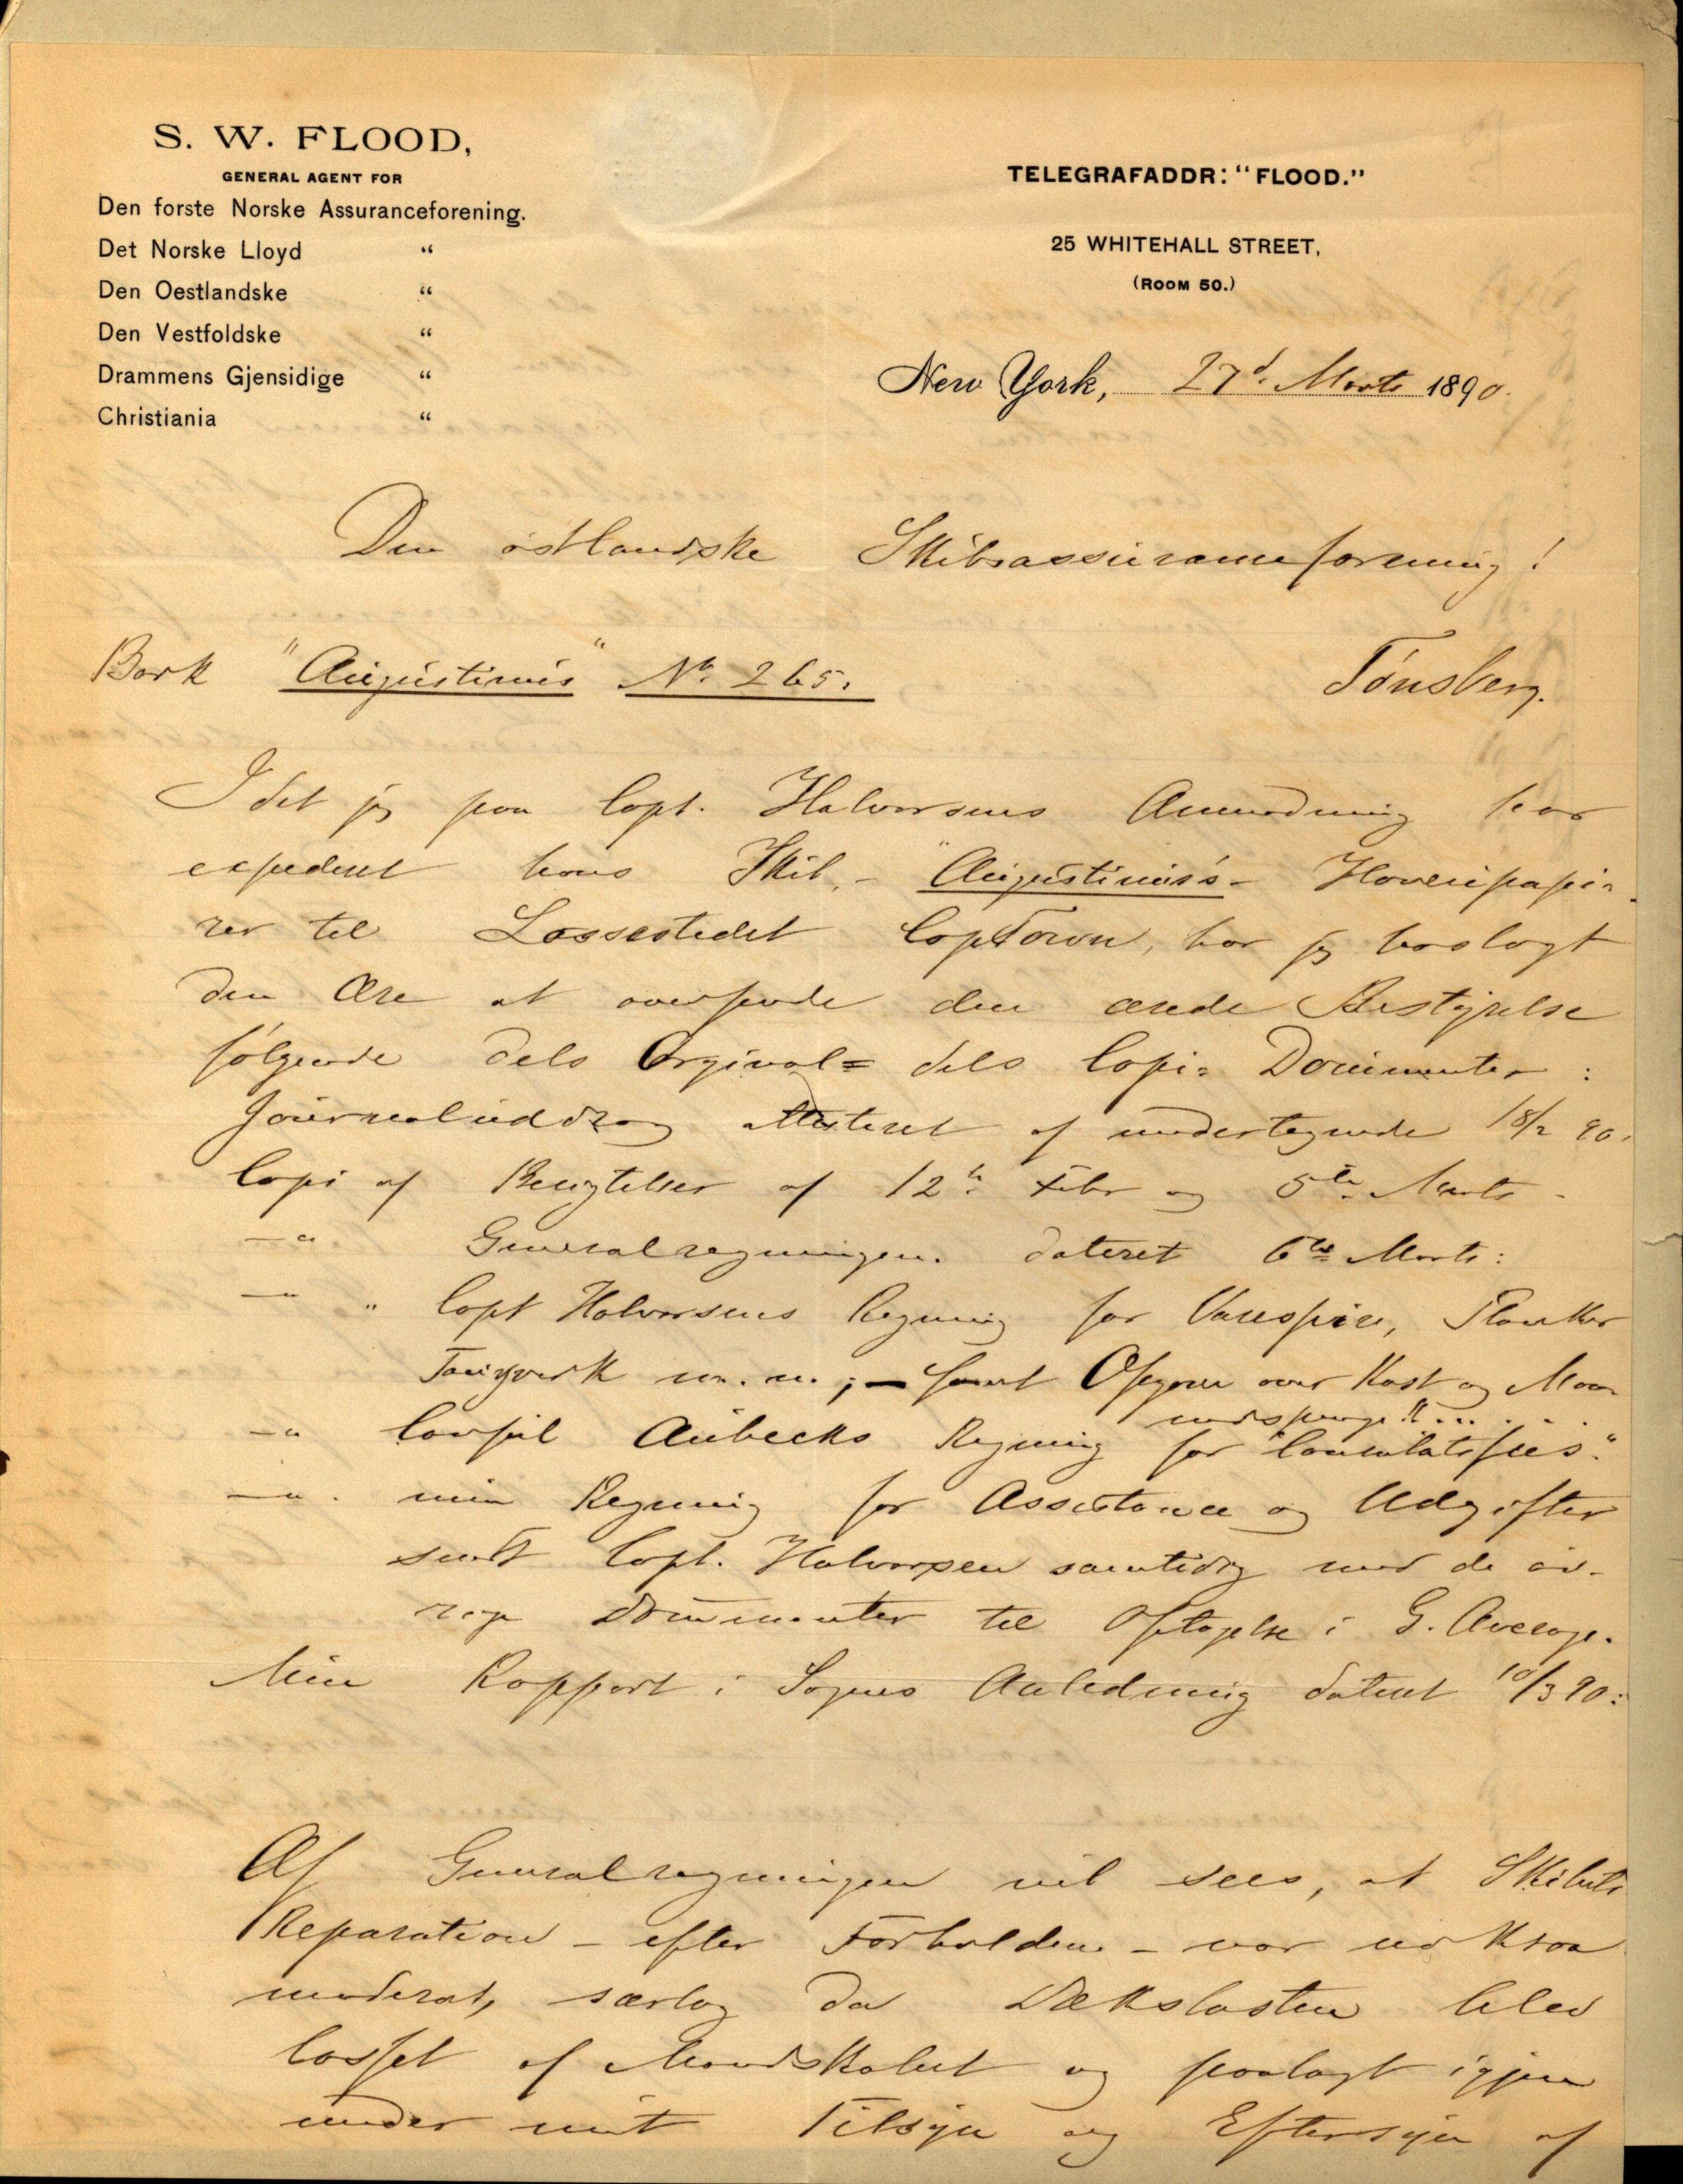 S. W. FLOOD,
GENERAL AGENT FOR
Den forste Norske Assuranceforening.
Det Norske Lloyd "
Den Oestlandske "
Den Vestfoldske "
Drammens Gjensidige "
Christiania "
TELEGRAFADDR: "FLOOD."
25 WHITEHALL STREET,
(ROOM 50.)
New York, 27d. Marts 1890.
Den østlandske Skibsassuranceforening!
Bark "Augustinus" No. 265.
Tønsberg.
Idet jeg paa Capt. Halvorsens Anmodning har
expederet hans Skib, - "Augustinus's - Havaripapi-
rer til Lossestedet Cap Town, har jeg herlagt
den Ære at oversende den ærede Bestyrelse
følgende dels Orginal= dels Copi= Documenter:
Journaluddrag attesteret af undertegnede 18/2 90.
Copi af Besigtelser af 12te Febr og 5te Marts -
—"— Generalregningen. dateret 6te Marts:
—"— " Capt Halvorsens Regning for Varespirer, Planker
Taugverk m. m.; - samt Opgave over Kost og Maa-
nedspenge!! ....
—"— Consul Aubecks Regning for "Consulatsfees".
—"— min Regning for Assistance og Udgifter
sendt Capt. Halvorsen samtidig med de øv-
rige Documenter til Optagelse i G. Average.
Min Rapport i Sagens Anledning dateret 10/3 90:
Af Generalregningen vil sees, at Skibets
Reparation - efter Forholdene - var
moderat, særlig da Dækslasten blev
losset af Mandskabet og paalagt igjen
under mit Tilsyn og Eftersyn af